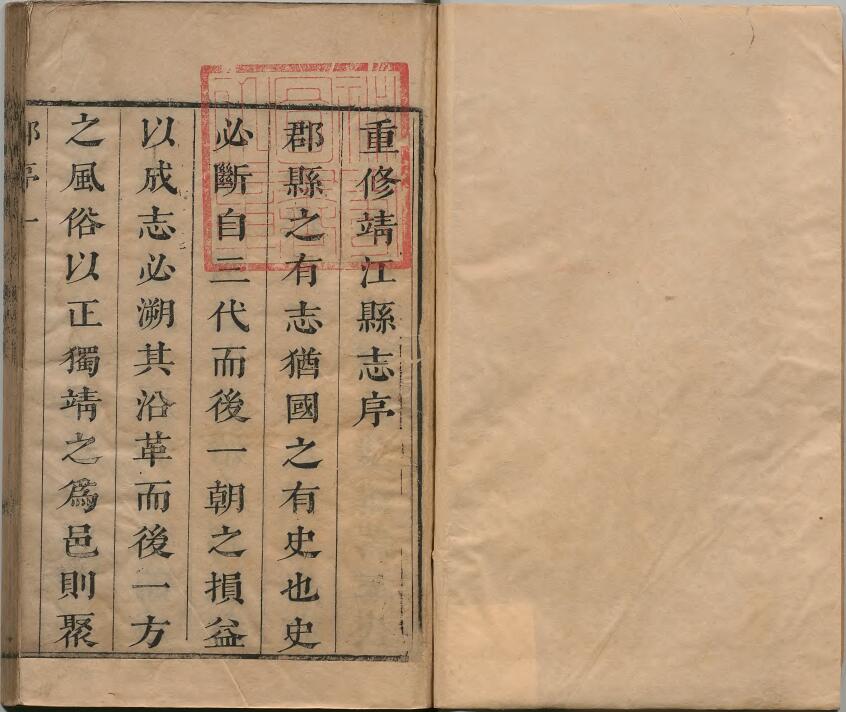 重修靖江縣志序
郡縣之有志猶國之有史也史
必斷自三代而後一朝之損益
以成志必溯其沿革而後一方
之風俗以正獨靖之為邑則聚
序一